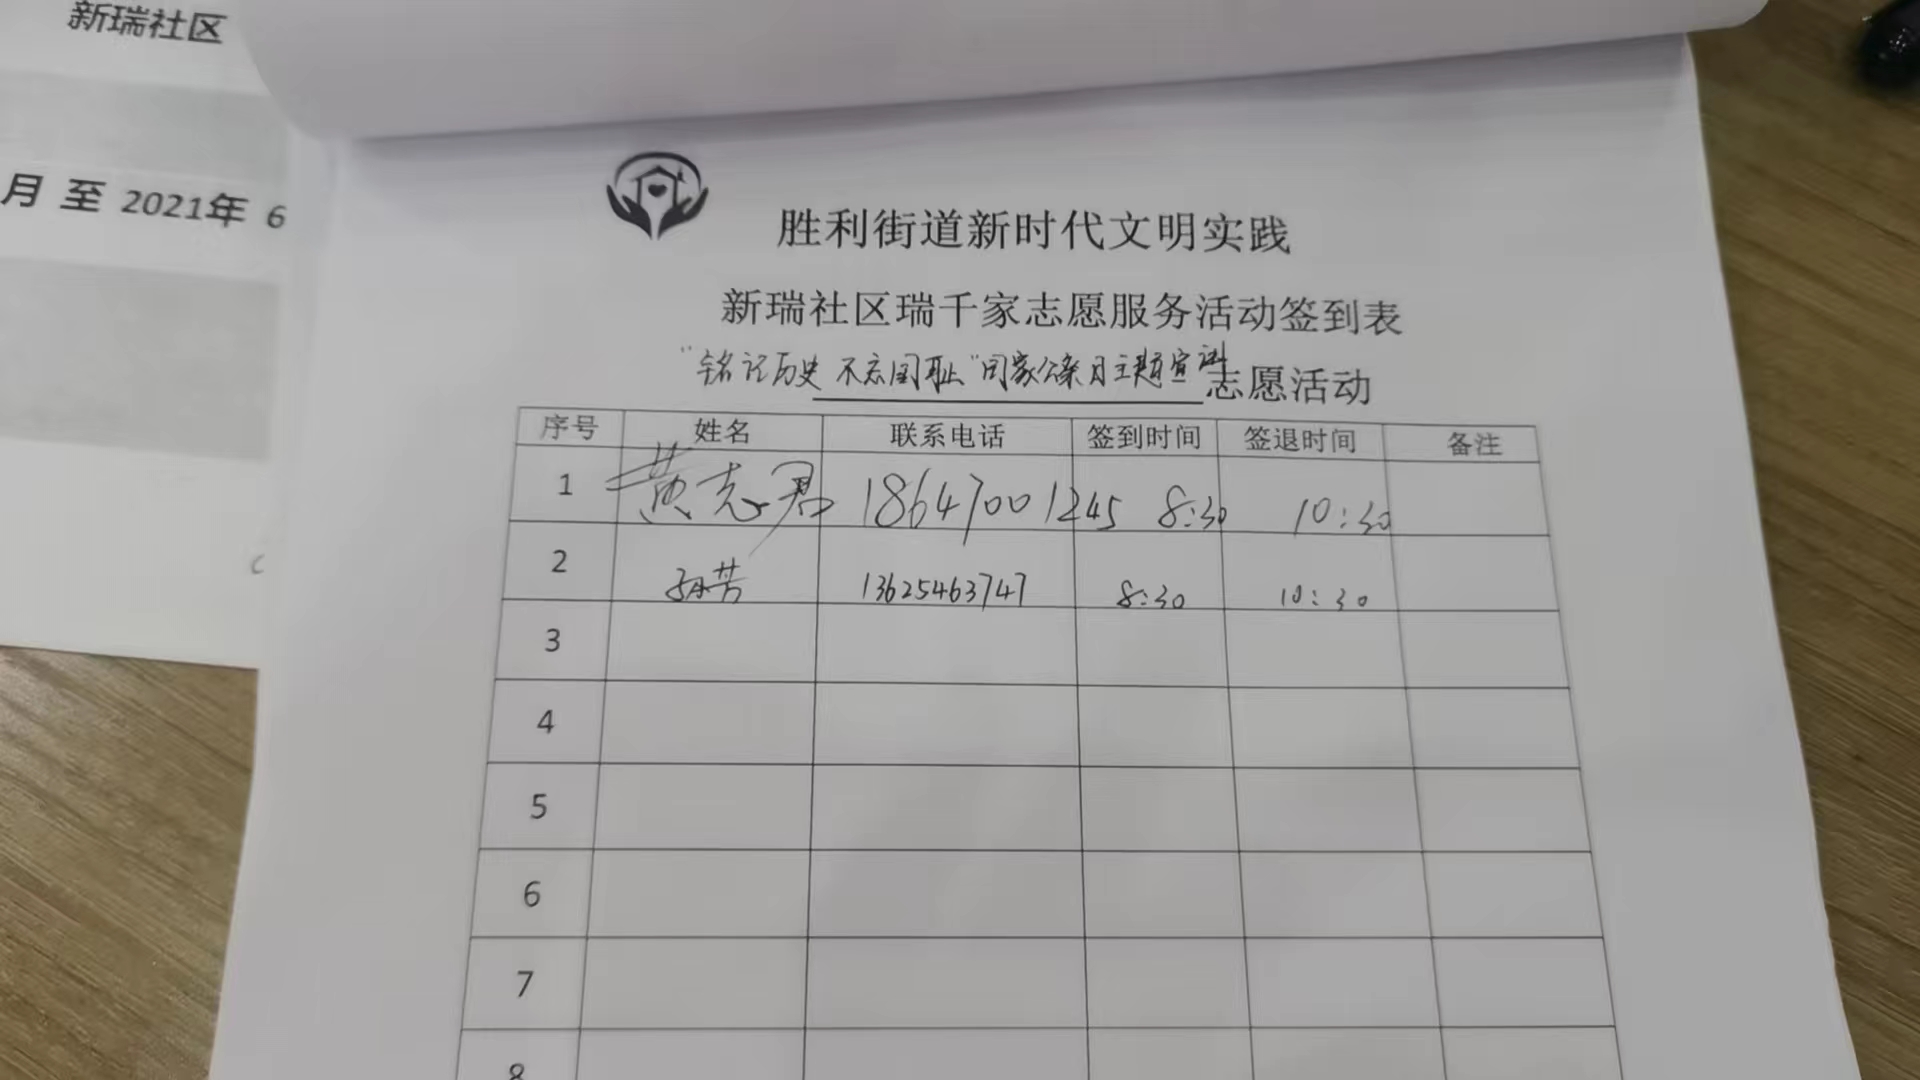 新瑞社区
月 至 2021年 6
胜利街道新时代文明实践
新瑞社区瑞千家志愿服务活动签到表
"铭记历史 不忘国耻"国家公祭日主题宣讲志愿活动
序号 姓名 联系电话 签到时间 签退时间 备注
1 黄志君 18647001245 8:30 10:30
2 孙芳 13625463747 8:30 10:30
3
4
5
6
7
8